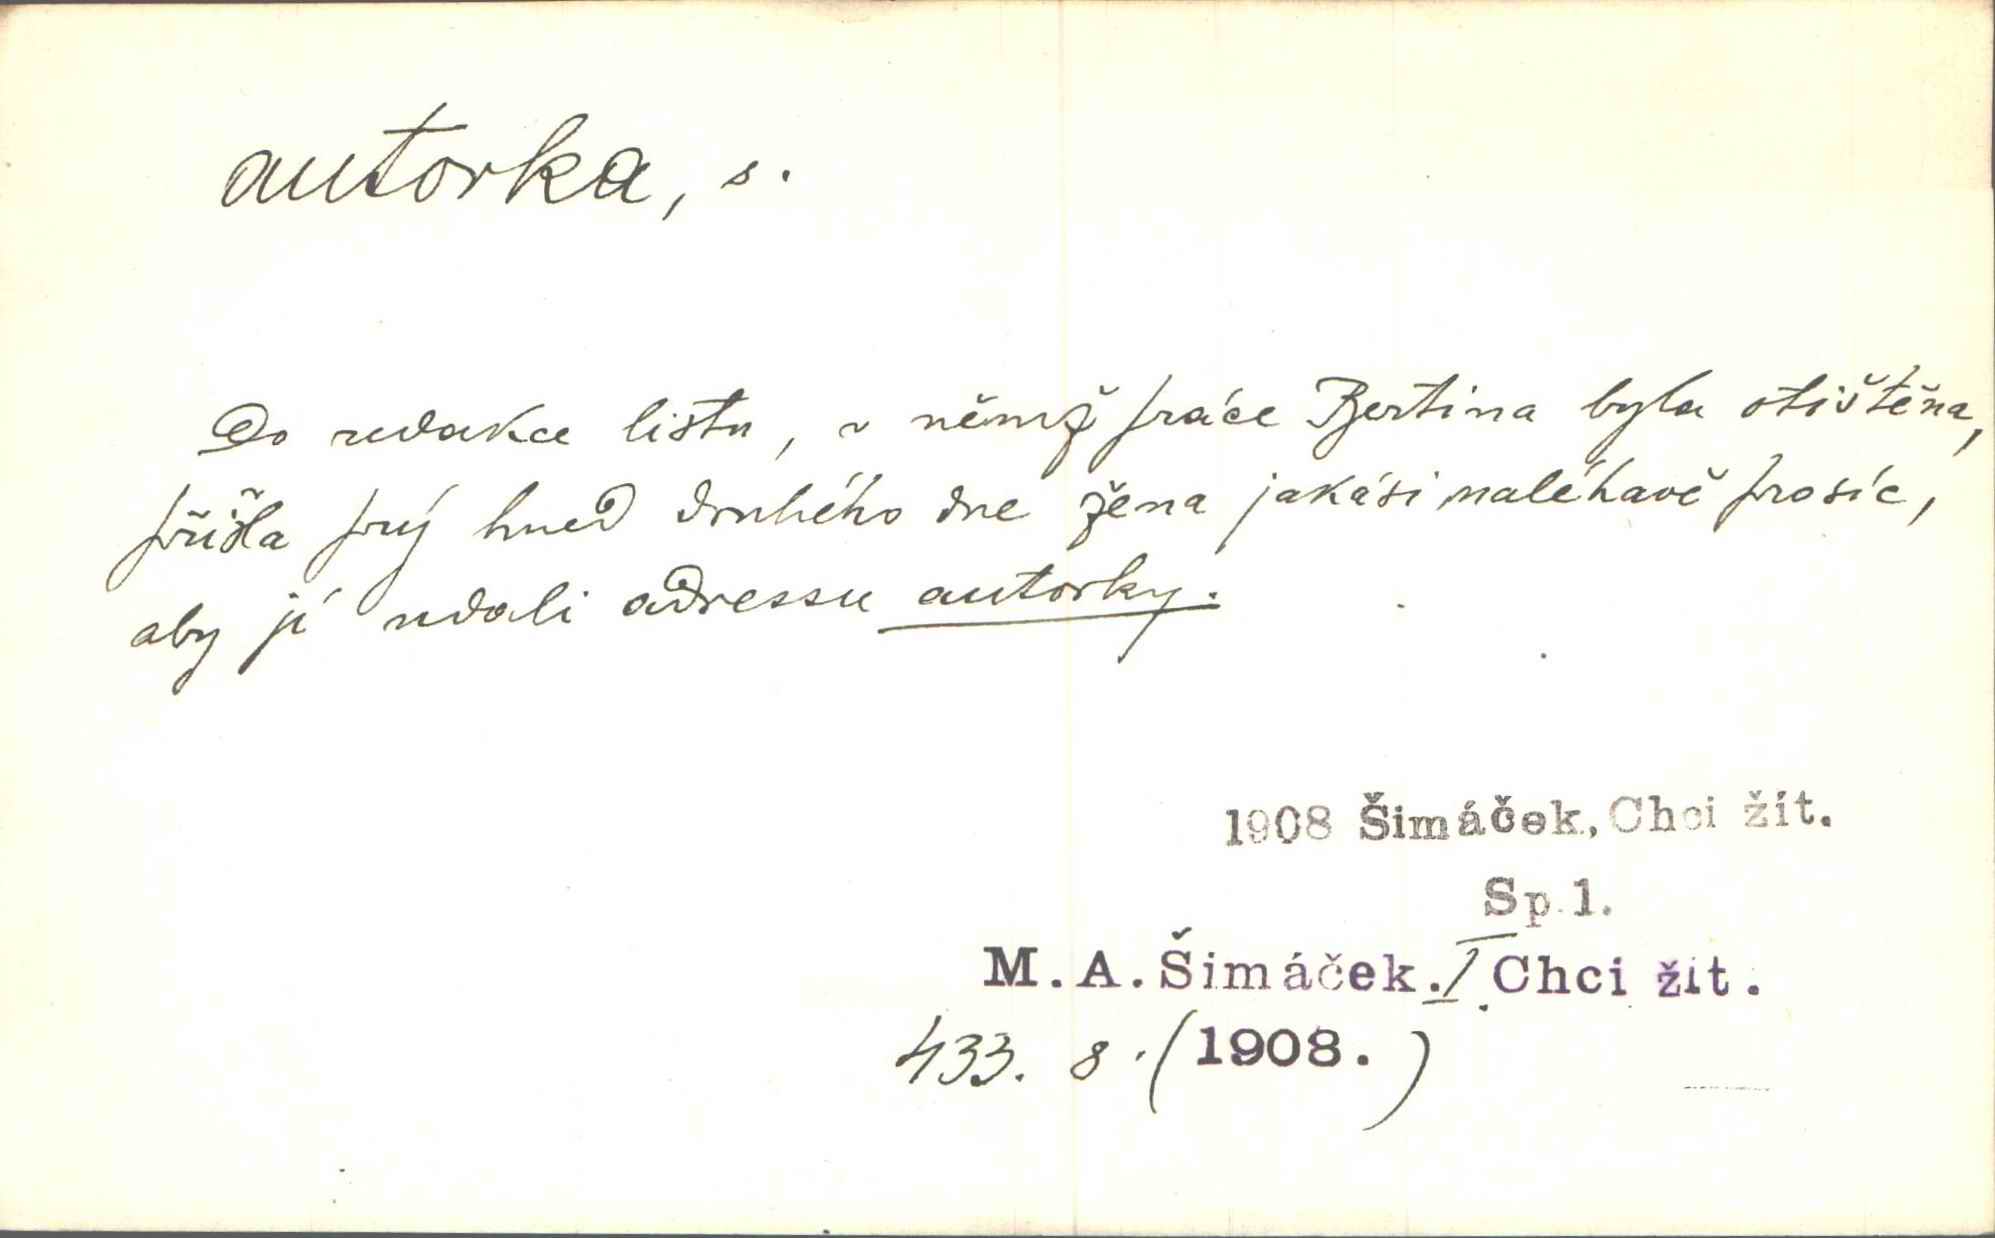 autorka, s.
Do redakce listu, v němž práce Bertina byla otištěna,
přišla prý hned druhého dne žena jakási naléhavě prosíc,
aby jí udali adressu autorky.
1908 Šimáček, Chci žít.
Sp. 1.
M. A. Šimáček. I Chci žít.
433. 8. (1908.)